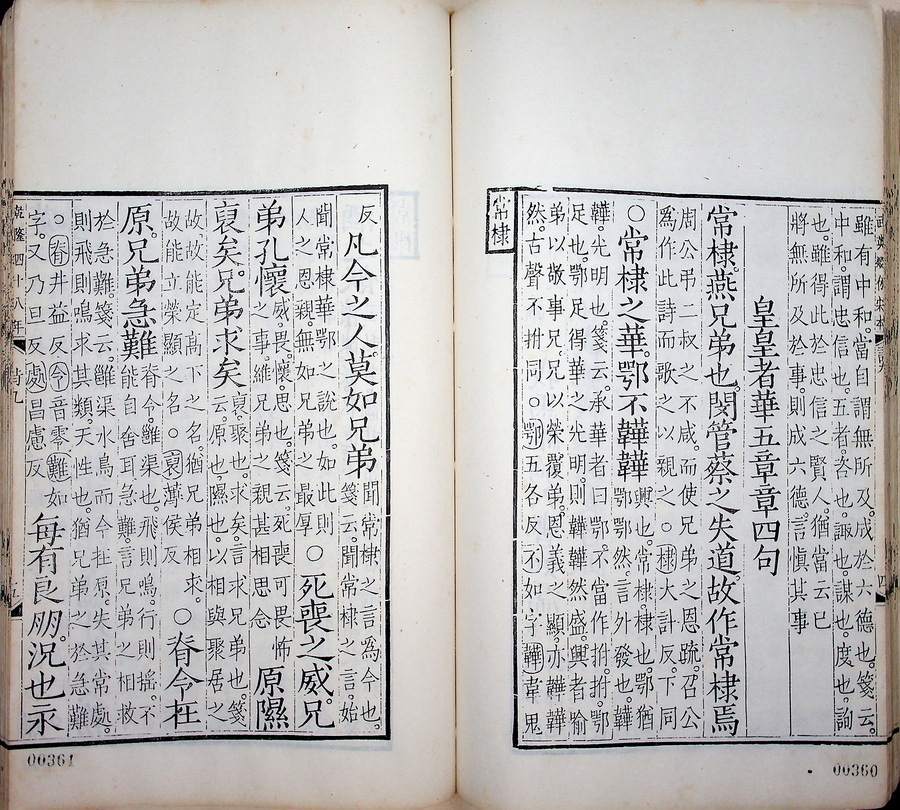 雖有中和。當自謂無所及。成於六德也。箋云。
中和。謂忠信也。五者。咨也。諏也。謀也。度也。詢
也。雖得此於忠信之賢人。猶當云已
將無所及於事。則成六德。言慎其事
皇皇者華五章章四句
常棣。燕兄弟也。閔管蔡之失道。故作常棣焉
周公弔二叔之不咸。而使兄弟之恩疏。召公
為作此詩。而歌之以親之○棣大計反。下同
○常棣之華。鄂不韡韡興也。常棣。棣也。鄂猶
鄂鄂然。言外發也。韡
韡。光明也。箋云。承華者曰鄂。不當作拊。拊。鄂
足也。鄂足得華之光明。則韡韡然盛。興者。喻
弟以敬事兄。兄以榮覆弟。恩義之顯。亦韡韡
然。古聲不拊同。○鄂五各反不如字韡韋鬼
常棣
00360
反凡今之人。莫如兄弟聞常棣之言為今也。
箋云。聞常棣之言。始
聞常棣華鄂之說也。如此則
人之恩親。無如兄弟之最厚○死喪之威。兄
弟孔懷威。畏。懷。思也。箋云。死喪可畏怖
之事。維兄弟之親。甚相思念原隰
裒矣。兄弟求矣裒。聚也。求矣。言求兄弟也。箋
云。原也。隰也。以相與聚居之
故。故能定高下之名。猶兄弟相求。
故能立榮顯之名。○裒薄侯反○脊令在
原。兄弟急難脊令。雝渠也。飛則鳴。行則搖。不
能自舍耳。急難。言兄弟之相救
於急難。箋云。雝渠水鳥。而今在原。失其常處。
則飛則鳴。求其類。天性也。猶兄弟之於急難
○脊井益反令音零難如
字。又乃旦反處昌慮反每有良朋。況也永
乾隆四十八年
詩九
00361